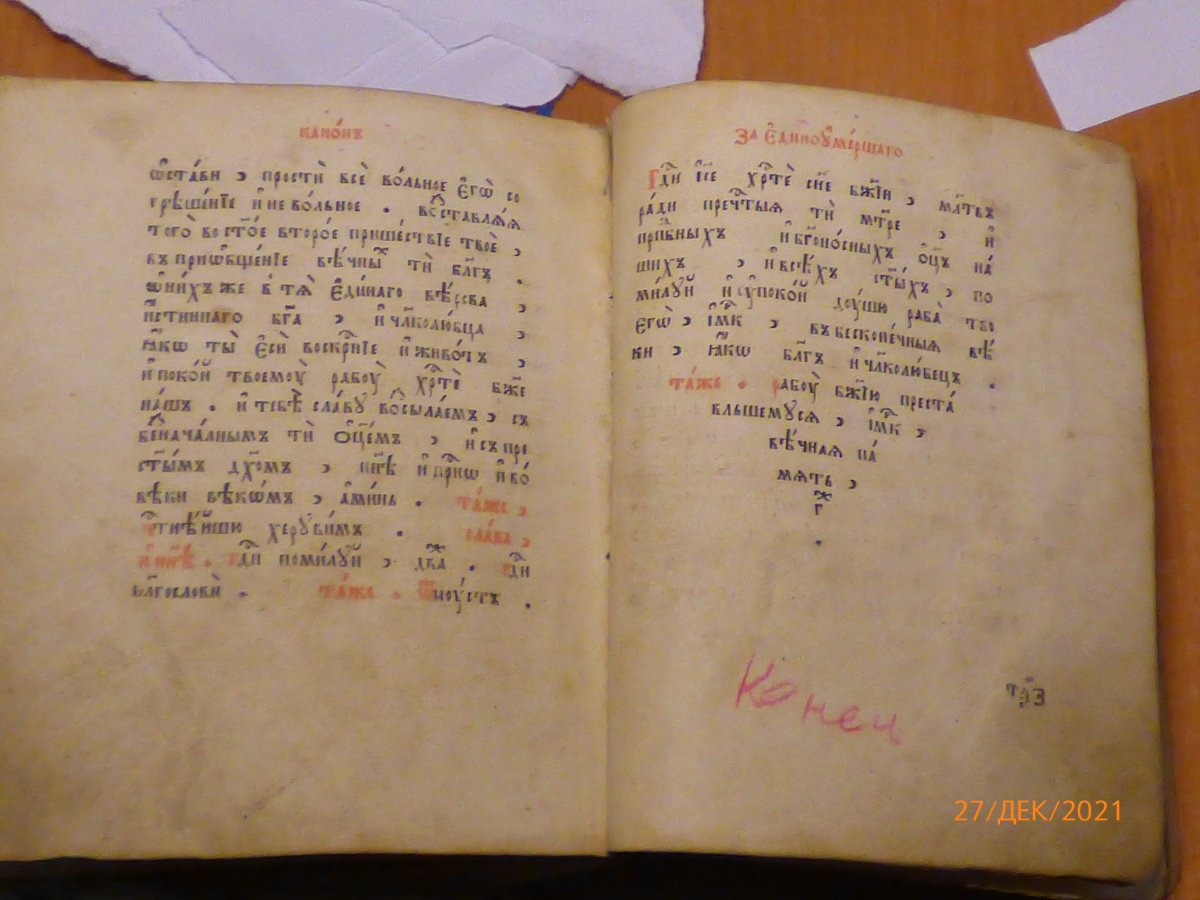 канѡ́нъ
ѡ҆ста́ви , простѝ всѐ во́льное є҆гѡ̀ со
грѣше́нїе и҆ нево́льное . воⷥставлѧ́ѧ
того̀ во ст҃о́е второ́е прише́ствїе твоѐ ,
въ приѡбще́нїе вѣ́чныⷯ тѝ бл҃гъ .
ѡ҆ ни́хъ же в̾ тѧ̀ є҆ди́наго вѣ́рова ,
и҆́стиннаго бг҃а , и҆ чл҃колю́бца ,
ꙗ҆́кѡ ты̀ є҆сѝ воскрⷭ҇нїе и҆ живо́тъ ,
и҆ поко́й твоемоу̀ рабоу̀ хрⷭ҇тѐ бж҃е
на́шъ . и҆ тебѣ̀ сла́ву воⷥсыла́емъ , съ
беⷥнача́лнымъ тѝ ѻ҆ц҃е́мъ , и҆ съ пре
ст҃ы́мъ дх҃омъ , нн҃ѣ и҆ прⷭ҇нѡ и҆ во́
вѣки вѣкѡ́мъ , а҆ми́нь . та́же ,
чⷭ҇тнѣ́йшю херуви́мъ . сла́ва ,
и҆ нн҃ѣ . гдⷭ҇и поми́луй , два́ . гдⷭ҇и
бл҃гословѝ . та́же . ѿпоу́стъ .
За Є҆ди́ноѹме́ршаго
Гдⷭ҇и і҆с҃е хрⷭ҇тѐ сн҃е бж҃їи , мл҃твъ
ра́ди преч҃тыѧ тѝ мт҃ре , и҆
прпⷣбныхъ и҆ бг҃оно́сныхъ ѻ҆ц҃ъ на́
шихъ , и҆ всѣ́хъ ст҃ы́хъ , по
ми́луй и҆ ᲂу҆поко́й доу́шю раба̀ тво
є҆гѡ̀ , і҆мⷬ҇къ , въ бесконе́чныѧ вѣ́
ки , ꙗ҆́кѡ бл҃гъ и҆ чл҃колю́бецъ .
та́же . рабоу̀ бж҃їю преста́
вльшемусѧ , і҆мⷬ҇къ ,
вѣ́чнаѧ па́
мѧть ,
гⷤ
.
Конец
тр҃з
27/ДЕК/2021